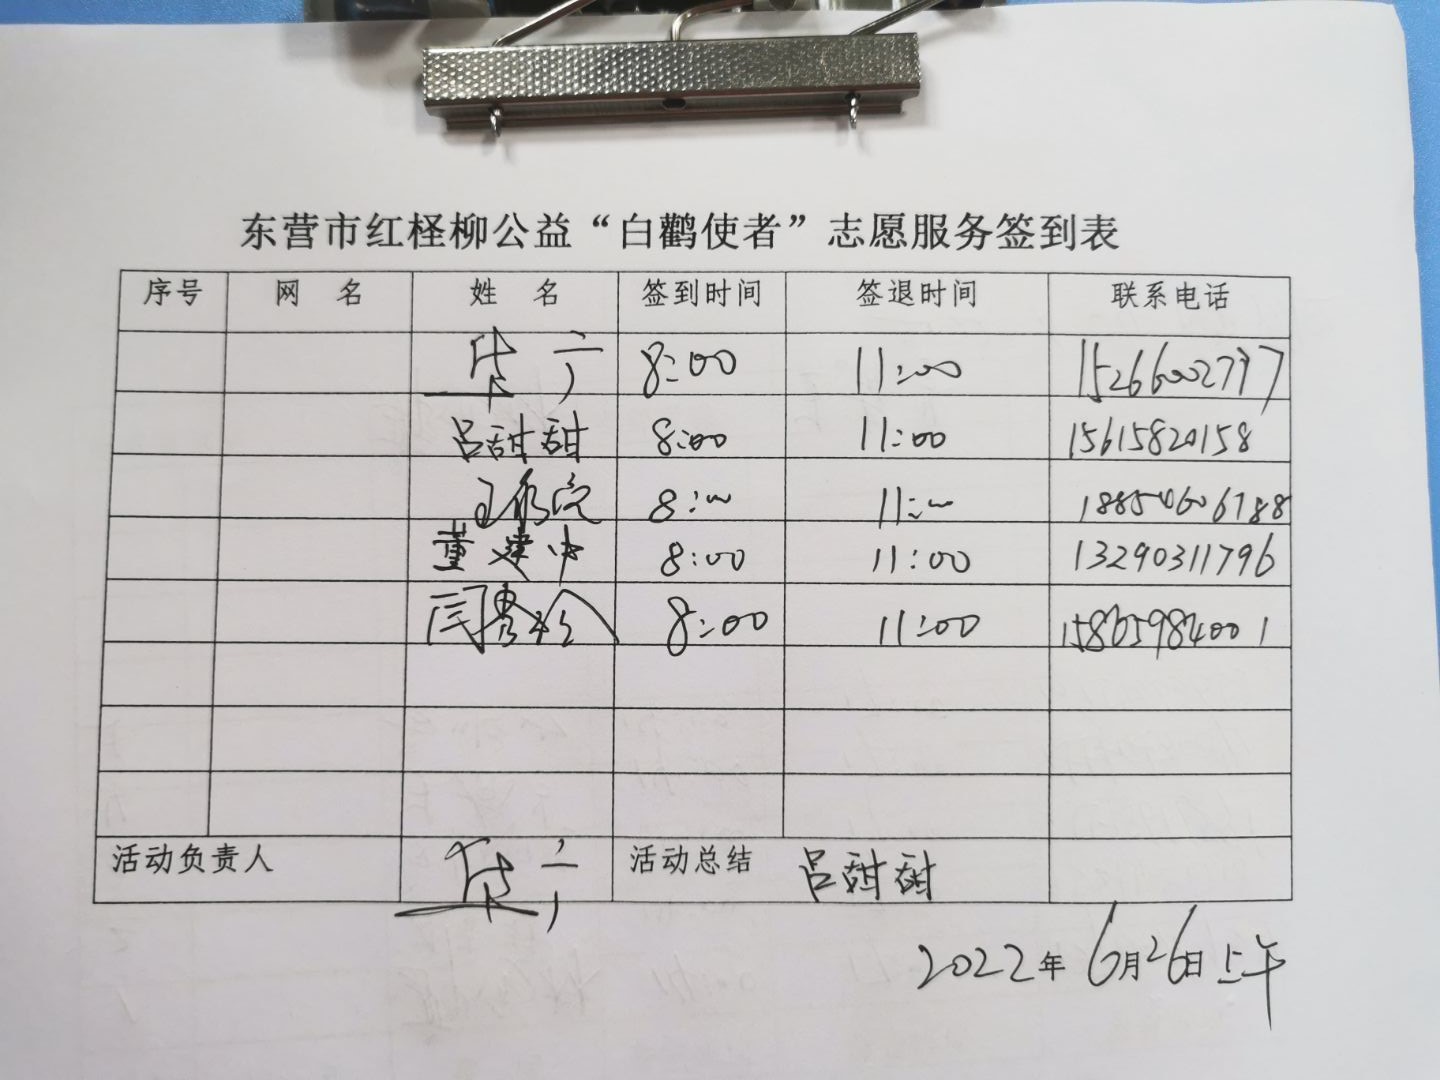 东营市红柽柳公益“白鹳使者”志愿服务签到表
序号 网 名 姓 名 签到时间 签退时间 联系电话
8:00 11:00 15266002797
吕甜甜 8:00 11:00 15615820158
8:00 11:00
董建中 8:00 11:00 13290311796
闫贵松 8:00 11:00 15865984001
活动负责人 活动总结 吕甜甜
2022年6月26日上午